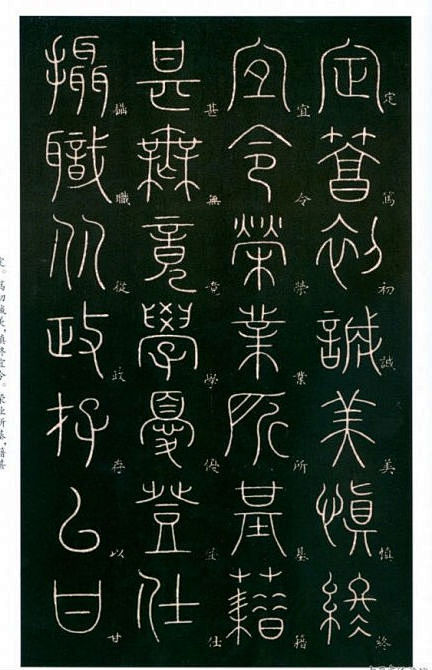 定篤初誠美慎終
定篤初誠美慎終
宜令榮業所基籍
宜令榮業所基籍
甚無竟學憂登仕
甚無竟學優登仕
攝職从政存以甘
攝職從政存以甘
定。笃初诚美,慎终宜令。荣业所基,籍甚